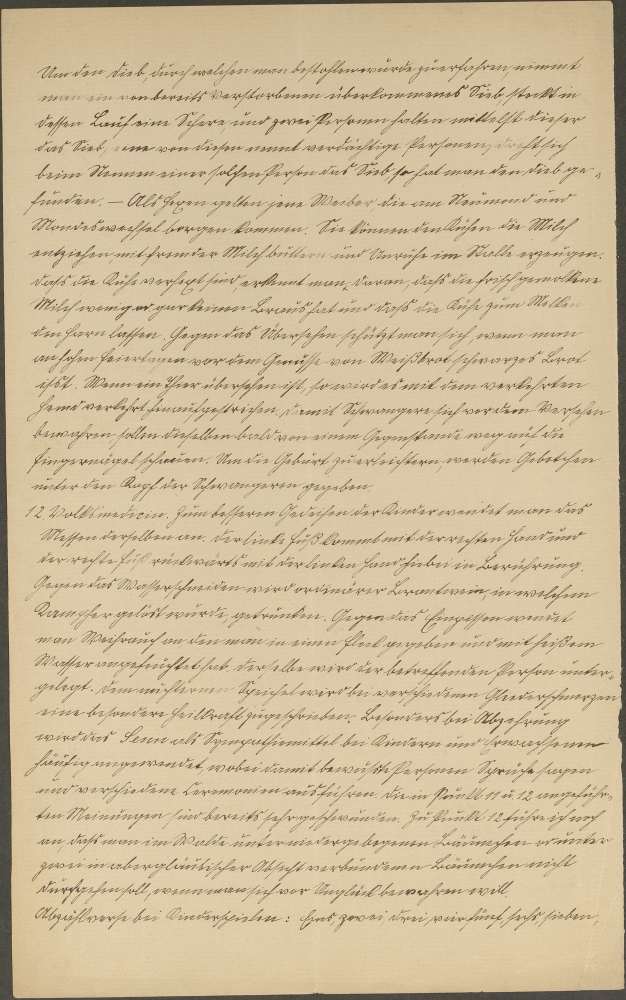 Um den Dieb, durch welchen man bestohlen wurde zu erfahren, nimmt
man ein von bereits Verstorbenen überkommenes Sieb, steckt in
dessen Lauf eine Schere, und zwei Personen halten mittelst dieser
das Sieb, eine von diesen nennt verdächtige Personen, dreht sich
beim Nennen einer solchen Person das Sieb, so hat man den Dieb ge-
funden. — Als Hexen gelten jene Weiber die am Neumond und
Mondeswechsel borgen kommen. Sie können den Kühen die Milch
entziehen mit fremder Milch buttern und Unruhe im Stalle erzeugen.
Daſs die Kühe verhext sind erkennt man, daran, daſs die frisch gemolkene
Milch wenig od gar keinen Braus hat und daſs die Kühe zum Melken
den Harn lassen. Gegen das Übersehen schützt man sich, wenn man
an hohen Feiertagen vor dem Genusse von Weißbrot schwarzes Brot
iſst. Wenn ein Thier übersehen ist, so wird es mit dem verkehrten
Hemd verkehrt hinaufgestrichen, damit Schwangere sich vor dem Versehen
bewahren sollen dieselben bald von einem Gegenstande weg auf die
Fingernägel schauen. Um die Geburt zu erleichtern, werden Gebetchen
unter den Kopf der Schwangeren gegeben.
12. Volksmedicin. Zum besseren Gedeihen der Kinder wendet man das
Messen derselben an. Der linke Fuß kommt mit der rechten Hand und
der rechte Fuß rückwärts mit der linken Hand hiebei in Berührung.
Gegen das Wasserschneiden wird ordinärer Brantwein, in welchem
Kampher gelöst wurde, getrunken. Gegen das wendet
man Weihrauch an den man in einen Fleck gegeben und mit heißem
Wasser angefeuchtet hat, derselbe wird der betreffenden Person unter-
gelegt. Dem nüchternen Speichel wird bei verschiedenen Gliederschmerzen
eine besondere Heilkraft zugeschrieben. Besonders bei Abzehrung
wird das als Sympathiemittel bei Kindern und Erwachsenen
häufig angewendet, wobei damit bewußte Personen Sprüche sagen
und verschiedene Ceremonien ausführen. Die in Punkt 11 u. 12 angeführ-
ten Meinungen sind bereits sehr geschwunden. Zu Punkt 12 führe ich noch
an, daſs man im Walde unter niedergebogenen Bäumchen od unter
zwei in abergläubischer Absicht verbundenen Bäumchen nicht
durchgehen soll, wenn man sich vor Unglück bewahren will.
Abzählverse bei Kinderspielen: Eins zwei, drei, vier fünf sechs sieben,